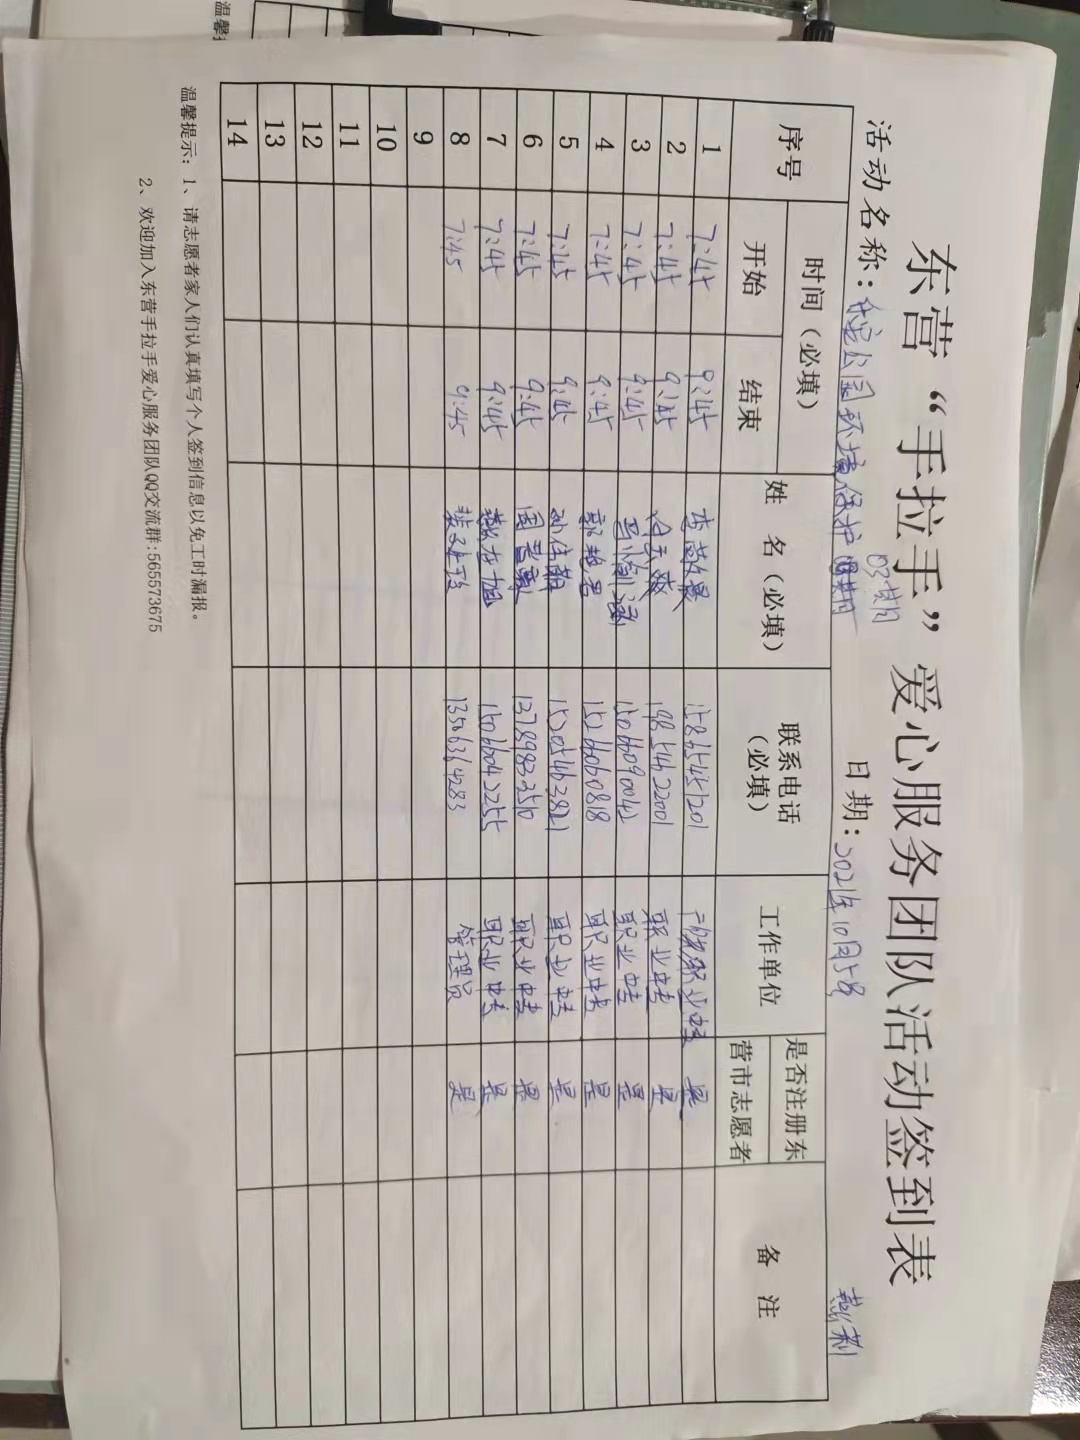 东营“手拉手”爱心服务团队活动签到表
活动名称：公园环境保护 03期 日期：2021年10月5号
序号 时间（必填） 姓 名（必填） 联系电话（必填） 工作单位 是否注册东营市志愿者 备 注
开始 结束
1 7:45 9:45 职业中专 是
2 7:45 9:45 19854622001 职业中专 是
3 7:45 9:45 15066090042 职业中专 是
4 7:45 9:45 郭艳君 15266060818 职业中专 是
5 7:45 9:45 15205463821 职业中专 是
6 7:45 9:45 13789832510 职业中专 是
7 7:45 9:45 15066042255 职业中专 是
8 7:45 9:45 13563614283 管理员 是
9
10
11
12
13
14
温馨提示：1、请志愿者家人们认真填写个人签到信息以免工时漏报。
2、欢迎加入东营手拉手爱心服务团队QQ交流群:565573675
温馨